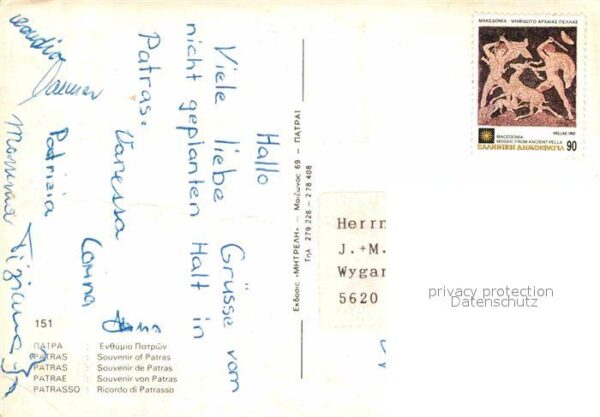 Hallo
Viele liebe Grüsse vom
nicht geplanten Halt in
Patras.
Vanessa
Corina
Patrizia
151
ΠΑΤΡΑ : Ενθύμιο Πατρών
PATRAS : Souvenir of Patras
PATRAS : Souvenir de Patras
PATRAE : Souvenir von Patras
PATRASSO : Ricordo di Patrasso
Εκδοσις «ΜΗΤΡΕΛΗ» - Μαιζώνος 69 - ΠΑΤΡΑΙ
Τηλ. 279 226 - 278 408
ΜΑΚΕΔΟΝΙΑ - ΨΗΦΙΔΩΤΟ ΑΡΧΑΙΑΣ ΠΕΛΛΑΣ
HELLAS 1992
MACEDONIA
MOSAIC FROM ANCIENT PELLA
ΕΛΛΗΝΙΚΗ ΔΗΜΟΚΡΑΤΙΑ 90
Herrn
J.+M.
Wygar
5620
privacy protection
Datenschutz